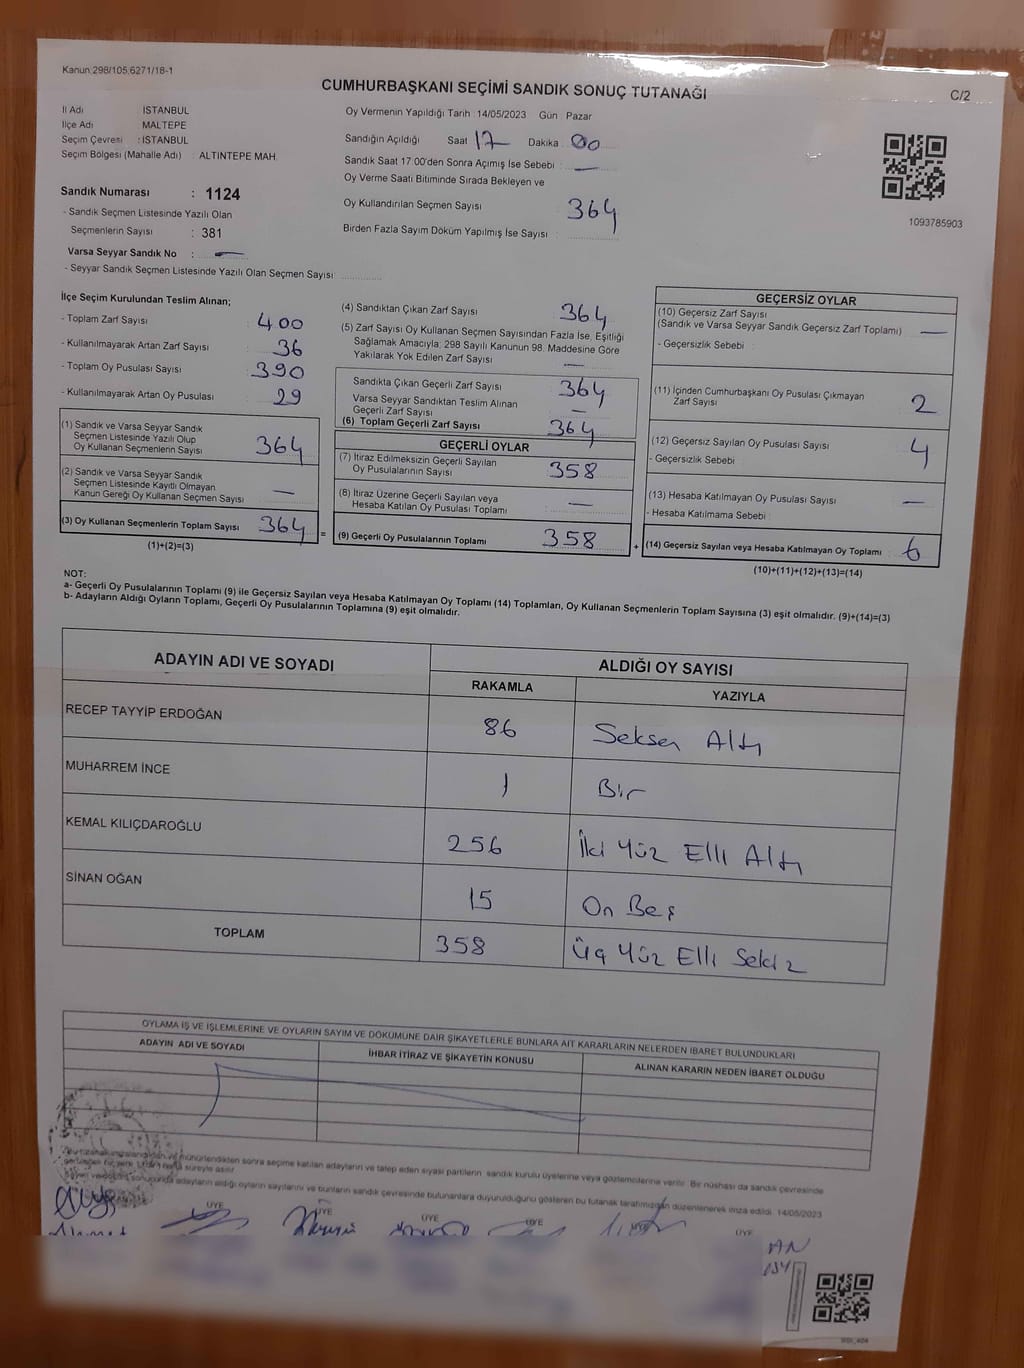 Kanun 298/105,6271/18-1
CUMHURBAŞKANI SEÇİMİ SANDIK SONUÇ TUTANAĞI
C/2
İl Adı İSTANBUL
İlçe Adı MALTEPE
Seçim Çevresi : İSTANBUL
Seçim Bölgesi (Mahalle Adı) : ALTINTEPE MAH.
Oy Vermenin Yapıldığı Tarih : 14/05/2023 Gün Pazar
Sandığın Açıldığı Saat 17 Dakika 00
Sandık Saat 17.00'den Sonra Açımış İse Sebebi : —
Oy Verme Saati Bitiminde Sırada Bekleyen ve
Oy Kullandırılan Seçmen Sayısı 364
Birden Fazla Sayım Döküm Yapılmış İse Sayısı :
1093785903
Sandık Numarası : 1124
- Sandık Seçmen Listesinde Yazılı Olan
Seçmenlerin Sayısı : 381
Varsa Seyyar Sandık No : —
- Seyyar Sandık Seçmen Listesinde Yazılı Olan Seçmen Sayısı
İlçe Seçim Kurulundan Teslim Alınan;
- Toplam Zarf Sayısı 400
- Kullanılmayarak Artan Zarf Sayısı 36
- Toplam Oy Pusulası Sayısı 390
- Kullanılmayarak Artan Oy Pusulası 29
(1) Sandık ve Varsa Seyyar Sandık
Seçmen Listesinde Yazılı Olup
Oy Kullanan Seçmenlerin Sayısı 364
(2) Sandık ve Varsa Seyyar Sandık
Seçmen Listesinde Kayıtlı Olmayan
Kanun Gereği Oy Kullanan Seçmen Sayısı —
(3) Oy Kullanan Seçmenlerin Toplam Sayısı 364 =
(1)+(2)=(3)
(4) Sandıktan Çıkan Zarf Sayısı 364
(5) Zarf Sayısı Oy Kullanan Seçmen Sayısından Fazla İse, Eşitliği
Sağlamak Amacıyla; 298 Sayılı Kanunun 98. Maddesine Göre
Yakılarak Yok Edilen Zarf Sayısı —
Sandıkta Çıkan Geçerli Zarf Sayısı 364
Varsa Seyyar Sandıktan Teslim Alınan
Geçerli Zarf Sayısı —
(6) Toplam Geçerli Zarf Sayısı 364
GEÇERLİ OYLAR
(7) İtiraz Edilmeksizin Geçerli Sayılan
Oy Pusulalarının Sayısı 358
(8) İtiraz Üzerine Geçerli Sayılan veya
Hesaba Katılan Oy Pusulası Toplamı —
(9) Geçerli Oy Pusulalarının Toplamı 358 +
GEÇERSİZ OYLAR
(10) Geçersiz Zarf Sayısı
(Sandık ve Varsa Seyyar Sandık Geçersiz Zarf Toplamı) —
- Geçersizlik Sebebi :
(11) İçinden Cumhurbaşkanı Oy Pusulası Çıkmayan
Zarf Sayısı 2
(12) Geçersiz Sayılan Oy Pusulası Sayısı 4
- Geçersizlik Sebebi
(13) Hesaba Katılmayan Oy Pusulası Sayısı —
- Hesaba Katılmama Sebebi :
(14) Geçersiz Sayılan veya Hesaba Katılmayan Oy Toplamı 6
(10)+(11)+(12)+(13)=(14)
NOT:
a- Geçerli Oy Pusulalarının Toplamı (9) ile Geçersiz Sayılan veya Hesaba Katılmayan Oy Toplamı (14) Toplamları, Oy Kullanan Seçmenlerin Toplam Sayısına (3) eşit olmalıdır. (9)+(14)=(3)
b- Adayların Aldığı Oyların Toplamı, Geçerli Oy Pusulalarının Toplamına (9) eşit olmalıdır.
ADAYIN ADI VE SOYADI
ALDIĞI OY SAYISI
RAKAMLA YAZIYLA
RECEP TAYYİP ERDOĞAN 86 Seksen Altı
MUHARREM İNCE 1 Bir
KEMAL KILIÇDAROĞLU 256 İki Yüz Elli Altı
SİNAN OĞAN 15 On Beş
TOPLAM 358 Üç Yüz Elli Sekiz
OYLAMA İŞ VE İŞLEMLERİNE VE OYLARIN SAYIM VE DÖKÜMÜNE DAİR ŞİKAYETLERLE BUNLARA AİT KARARLARIN NELERDEN İBARET BULUNDUKLARI
ADAYIN ADI VE SOYADI
İHBAR İTİRAZ VE ŞİKAYETİN KONUSU
ALINAN KARARIN NEDEN İBARET OLDUĞU
mühürlendikten sonra seçime katılan adayların ve talep eden siyasi partilerin sandık kurulu üyelerine veya gözlemcilerine verilir. Bir nüshası da sandık çevresinde
süreyle asılır.
sonucunda adayların aldığı oyların sayılarını ve bunların sandık çevresinde bulunanlara duyurulduğunu gösteren bu tutanak tarafımızdan düzenlenerek imza edildi. 14/05/2023
ÜYE ÜYE ÜYE ÜYE ÜYE ÜYE
Ahmet
AN